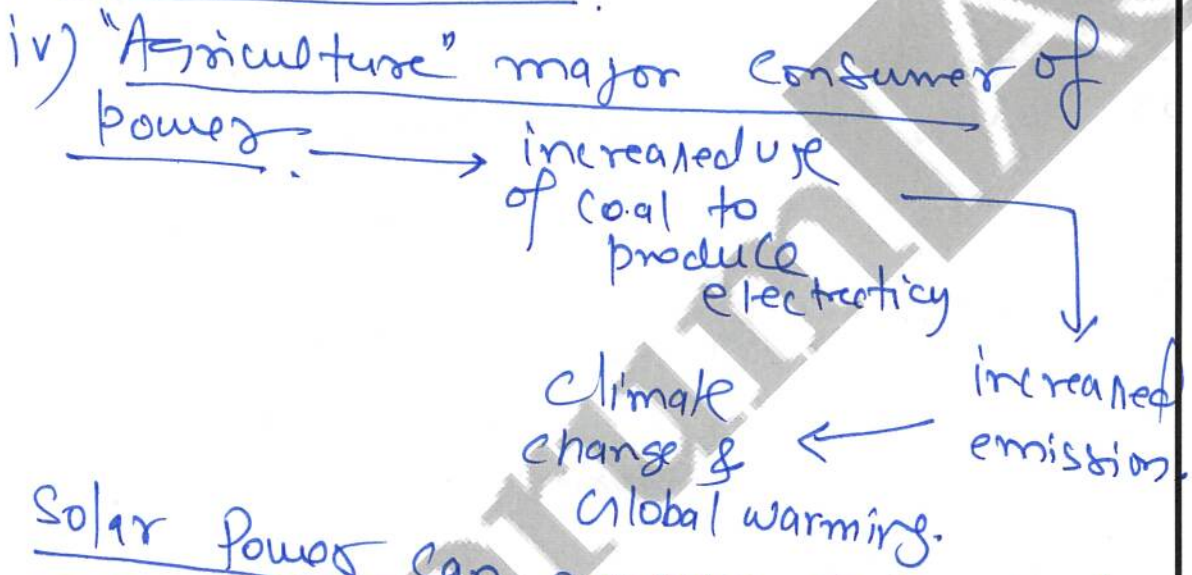 iv) "Agriculture" major consumer of
power. → increased use
of coal to
produce
electricity
increased
emission.
climate
change &
Global warming.
Solar Power can